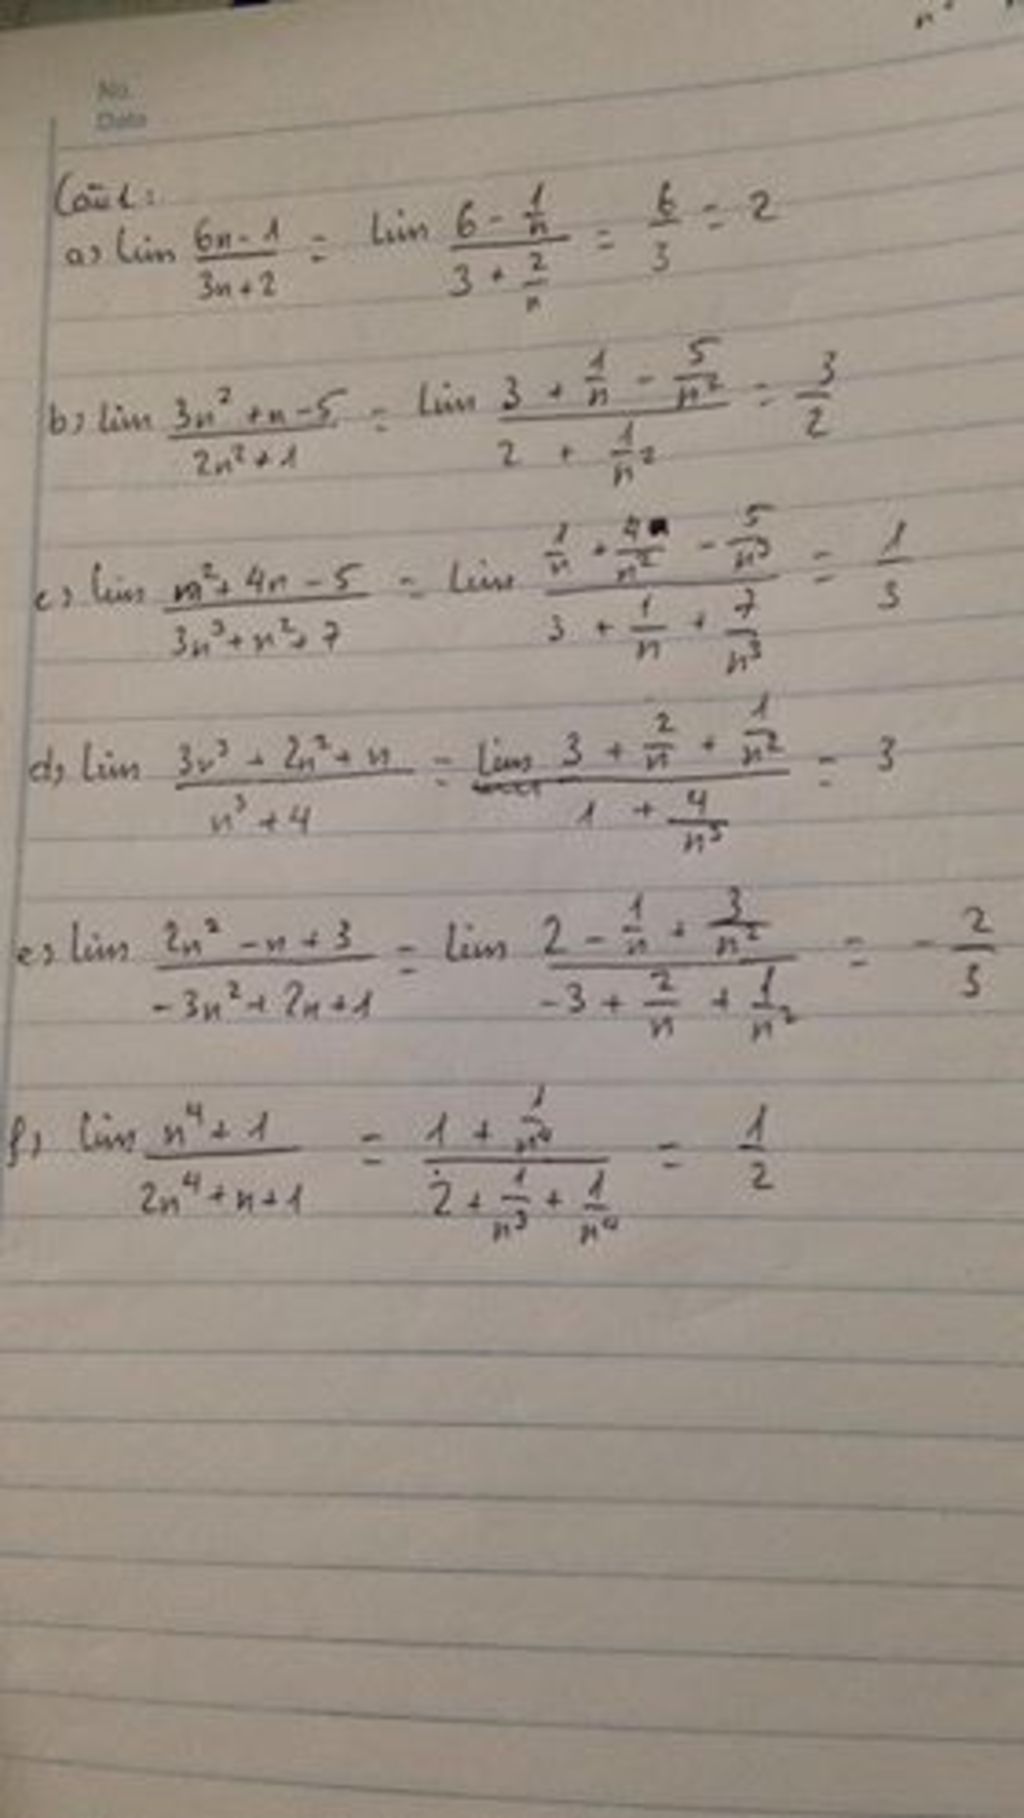 No.
Date
Câu 1:
a) lim (6n - 1)/(3n + 2) = lim (6 - 1/n)/(3 + 2/n) = 6/3 = 2
b) lim (3n² + n - 5)/(2n² + 1) = lim (3 + 1/n - 5/n²)/(2 + 1/n²) = 3/2
c) lim (n² + 4n - 5)/(3n³ + n² + 7) = lim (1/n + 4/n² - 5/n³)/(3 + 1/n + 7/n³) = 1/3
d) lim (3n³ + 2n² + n)/(n³ + 4) = lim (3 + 2/n + 1/n²)/(1 + 4/n³) = 3
e) lim (2n² - n + 3)/(-3n² + 2n + 1) = lim (2 - 1/n + 3/n²)/(-3 + 2/n + 1/n²) = - 2/3
f) lim (n⁴ + 1)/(2n⁴ + n + 1) = (1 + 1/n⁴)/(2 + 1/n³ + 1/n⁴) = 1/2